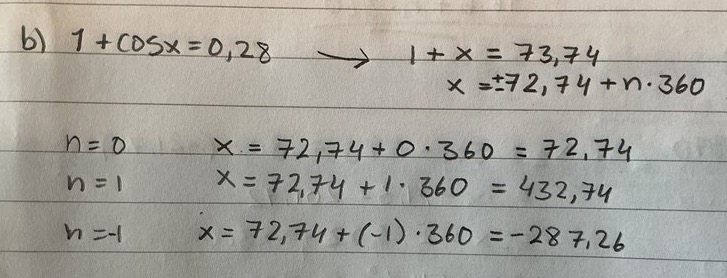 b) 1 + cosx = 0,28 → 1 + x = 73,74
x = ±72,74 + n · 360
n = 0 x = 72,74 + 0 · 360 = 72,74
n = 1 x = 72,74 + 1 · 360 = 432,74
n = -1 x = 72,74 + (-1) · 360 = -287,26